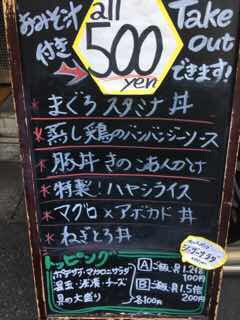 おみそ汁
付き
all
500
yen
Take
Out
できます!
* まぐろスタミナ丼
* 蒸し鶏のバンバンジーソース
* 豚丼きのこあんかけ
* 特製!ハヤシライス
* マグロ×アボカド丼
* ねぎとろ丼
トッピング
ポテサラ・マカロニサラダ
温玉・浅漬・チーズ
具の大盛り 各100円
A ごはん 1.2倍
100円
B ごはん 1.5倍
200円
シーザーサラダ